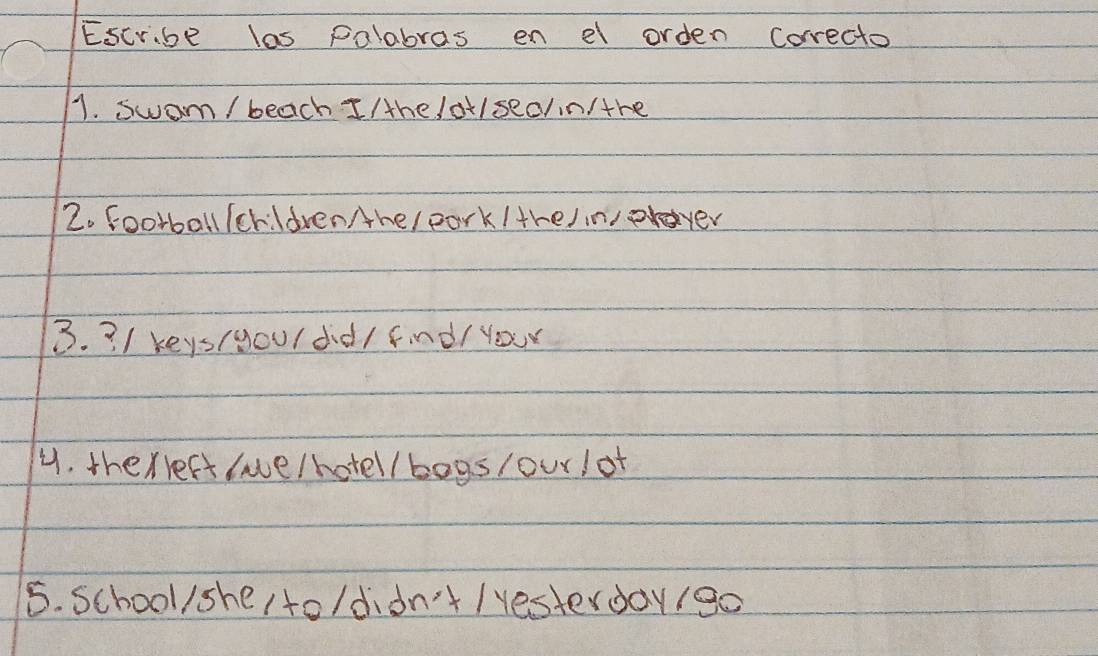 Escribe las Palabras en el orden correcto
1. swam/beach I/the/at/sea/in/the
2. football/children/the/park/the/in/player
3. ?/ keys/you/did/find/your
4. the/left/we/hotel/bags/our/at
5. School/she/to/didn't/yesterday/go